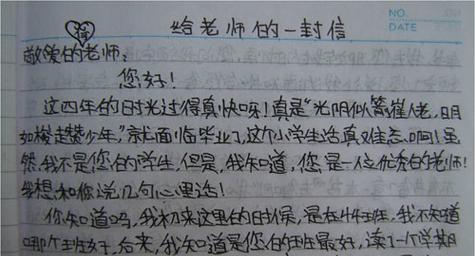 得
给老师的一封信
NO.
DATE
敬爱的老师:
您好!
这四年的时光过得真快呀!真是"光阴似箭催人老,日月
如梭赶少年,"就面临毕业了,这个小学生活真难忘啊!虽
然,我不是您的学生,但是,我知道,您是一位优秀的老师!
我想和你说几句心里话!
你知道吗,我初来这里的时候,是在4年班,我不知道
哪个班好,后来,我知道是您的班最好,读了一个学期